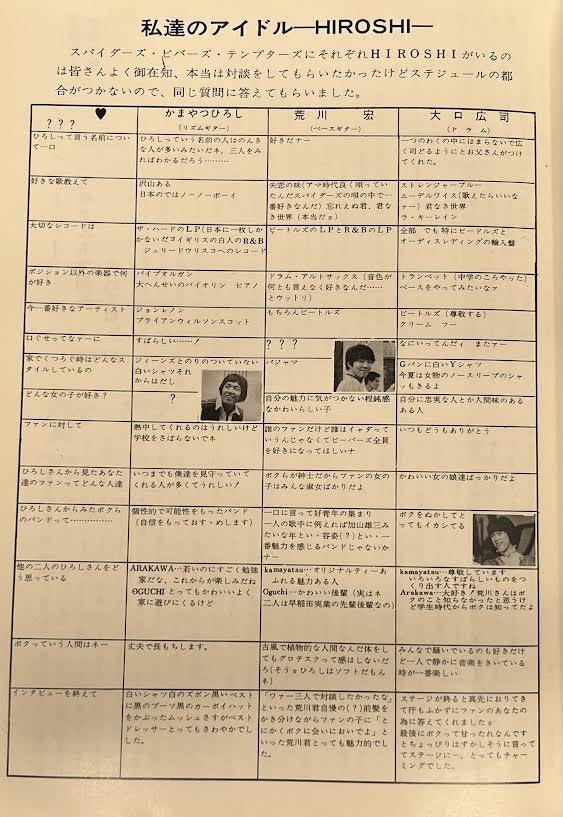 私達のアイドル―HIROSHI―
スパイダーズ・ビバーズ・テンプターズにそれぞれHIROSHIがいるの
は皆さんよく御在知、本当は対談をしてもらいたかったけどステジュールの都
合がつかないので、同じ質問に答えてもらいました。
♥
? ? ?
かまやつひろし
(リズムギター)
荒川 宏
(ベースギター)
大口広司
(ドラム)
ひろしって言う名前につい
て一口
ひろしっていう名前の人はのんき
な人が多いみたいだネ、三人をみ
ればわかるだろう………
好きだナー
一つのわくの中にはまらないで広
く司どるようにとお父さんがつけ
てくれた。
好きな歌教えて
沢山ある
日本のではノーノーボーイ
失恋の味(アマ時代良く唄ってい
たんだスパイダーズの唄の中で一
番好きなんだ) 忘れえぬ君、君な
き世界(本当だョ)
ストレンジャーブルー
エーデルワイス(歌えたらいいな
ァー) 君なき世界
ラ・キーレイン
大切なレコードは
ザ・ハードのLP(日本に一枚しか
かないだヨイギリスの白人のR&B
ジュリードウリスコへのレコード
ビートルズのLPとR&BのLP
全部 でも特にビードルズと
オーディスレディングの輸入盤
ポジション以外の楽器で何
が好き
パイプオルガン
大へんせいのバイオリン ピアノ
ドラム・アルトサックス(音色が
何とも言えなく好きなんだ……
とウットリ)
トランペット(中学のころやった)
ベースをやってみたいなァ
今一番好きなアーティスト
ジョンレノン
ブライアンウィルソンスコット
もちろんビートルズ
ビートルズ(尊敬する)
クリーム フー
口ぐせってなァーに
すばらしい……!
? ? ?
なにいってんだィ またァー
家でくつろぐ時はどんなス
タイルしているの
ジィーンズとのりのついていない
白いシャツそれ
からはだし
パジャマ
Gパンに白いYシャツ
今夏は女物のノースリーブのシャ
ッもきるよ
どんな女の子が好き?
?
自分の魅力に気がつかない程鈍感
なかわいらしい子
自分に忠実な人とか人間味のある
ある人
ファンに対して
熱中してくれるのはうれしいけど
学校をさばらないでネ
誰のファンだけど誰はイャダってい
いうんじゃなくてビーバーズ全員
を好きになってほしいナ
いつもどうもありがとう
ひろしさんから見たあなた
達のファンってどんな人達
いつまでも僕達を見守っていて
くれる人が多くてうれしい!
ボクらが紳士だからファンの女の
子はみんな淑女ばかりだよ
かわいい女の娘達ばっかりだよ
ひろしさんからみたボクら
のバンドって……………
個性的で可能性をもったバンド
(自信をもっておす・めします)
一口に言って好青年の集まり
一人の歌手に例えれば加山雄三み
たいな年とい・容姿(?)とい・一
番魅力を感じるバンドじゃないか
ナー
ボクをぬかしてと
ってもイカシてる
他の二人のひろしさんをど
う思っている
ARAKAWA…若いのにすごく勉強
家だな、これからが楽しみだね
OGUCHI とってもかわいいよく
家に遊びにくるけど
kamayatsu…オリジナルティーあ
ふれる魅力ある人
Oguchi…かわいい後輩(実はネ
二人は早稲田実業の先輩後輩なの)
kamayatsu…尊敬しています
いろいろなすばらしいものをつ
くり出す人ですね
Arakawa…大好き!荒川さんはボ
クのこと知らなかったと思うけ
ど学生時代からボクは知ってたよ
ボクっていう人間はネー
丈夫で長もちします。
古風で植物的な人間なんだ体をし
てもグロテスクって感はしないだ
ろ(そうョひろしはソフトだもん
ネ)
みんなで騒いでいるのも好きだけ
ど一人で静かに音楽をきいている
時が一番楽しい
インタビューを終えて
白いシャツ白のズボン黒いベスト
に黒のブーツ黒のカーボイハット
をかぶったムッシュさすがベスト
ドレッサーとってもさわやかでし
た。
「ワァー三人で対談したかったな」
といった荒川君自慢の(?)前髪を
かき分けながらファンの子に「と
にかくボクに会いにおいでよ」と
いった荒川君とっても魅力的でし
た。
ステージが終ると真先におりてき
て汗もふかずにファンのあなたの
為に答えてくれましたョ
最後にボクって甘ったれなんです
とちょっぴりはずかしそうに言って
てステージにー。とってもチャー
ミングでした。